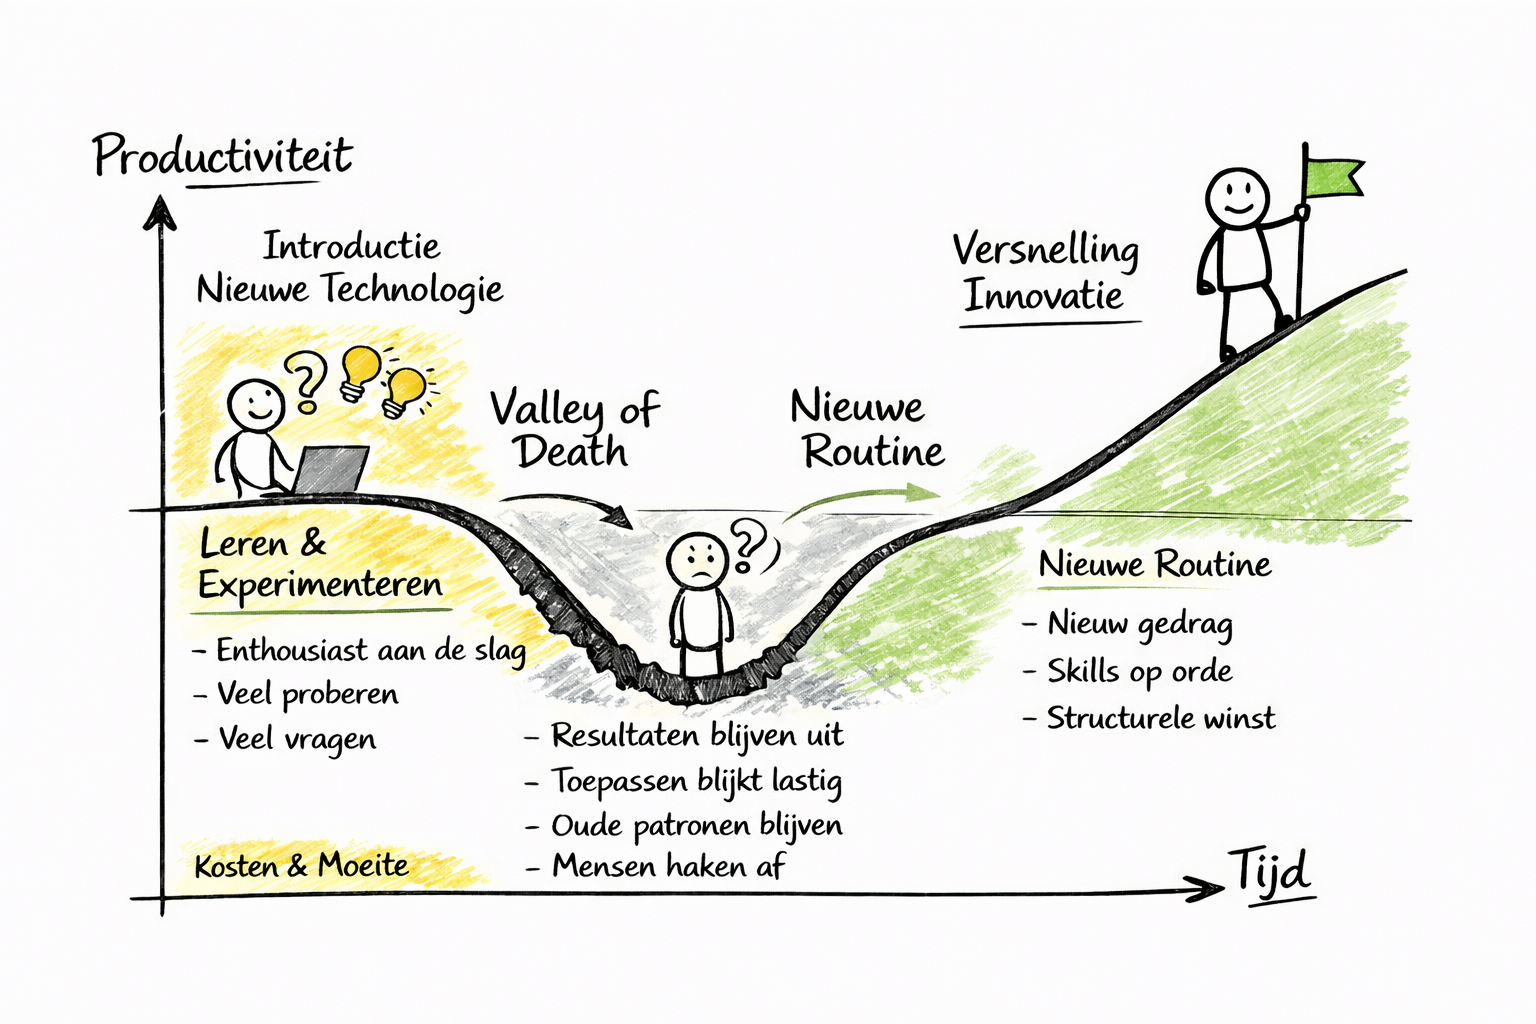 Productiviteit
Introductie
Nieuwe Technologie
Versnelling
Innovatie
?
Valley of
Death
Nieuwe
Routine
Leren &
Experimenteren
- Enthousiast aan de slag
- Veel proberen
- Veel vragen
?
Nieuwe Routine
- Nieuw gedrag
- Skills op orde
- Structurele winst
- Resultaten blijven uit
- Toepassen blijkt lastig
- Oude patronen blijven
- Mensen haken af
Kosten & Moeite
Tijd